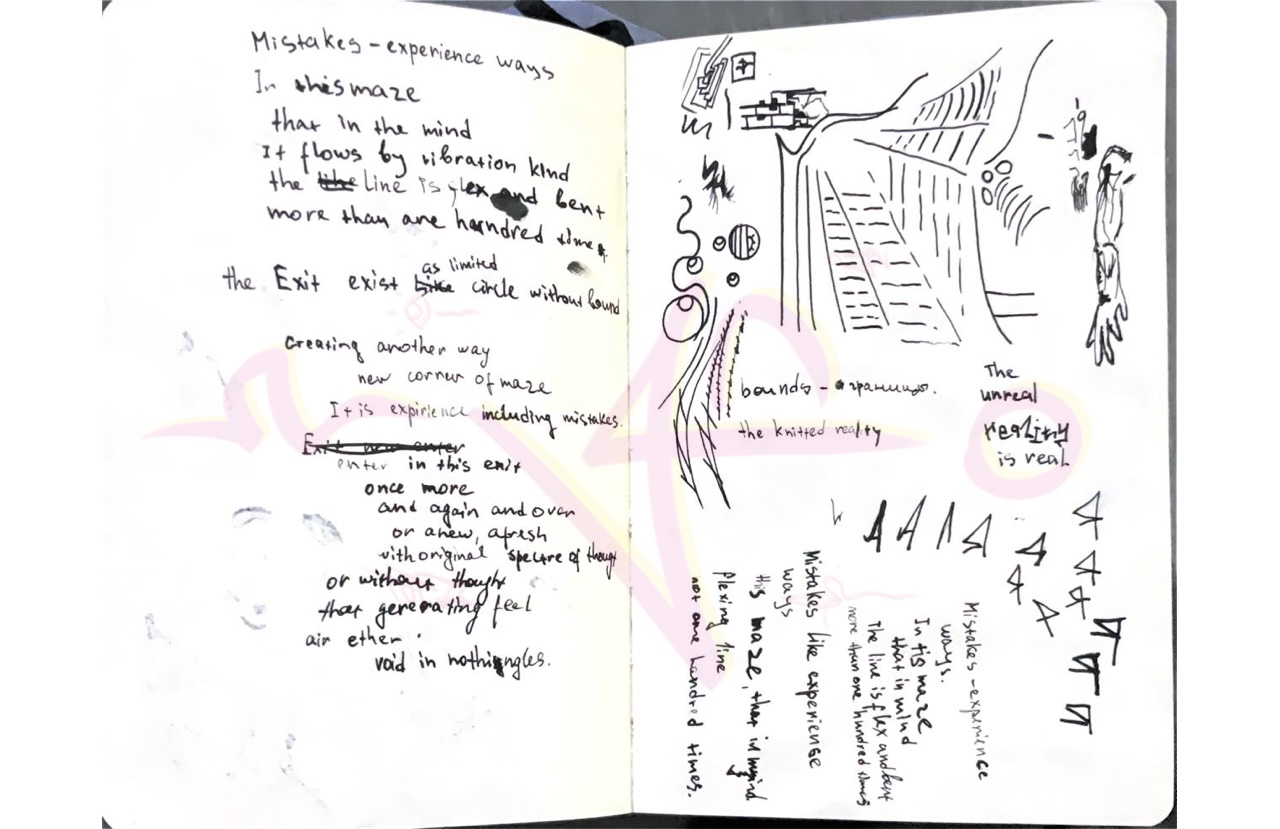 Mistakes - experience ways
In this maze
that in the mind
It flows by vibration kind
the like line is flex and bent
more than one handred times
as limited
the Exit exist like circle without bound
Creating another way
new corner of maze
It is expirience including mistakes.
Exit new enter
enter in this exit
once more
and again and over
or anew, afresh
with original spectre of though
or without thought
that generating feel
air ether.
void in nothingles.
bounds - ограницы.
the knitted reality
The
unreal
reality
is real
Mistakes - experience
ways.
In tis maze
that in mind
The line is flex and bent
more than one hundred times
Mistakes like experience
ways
this maze, that in mind
flexing line
not one handred times.